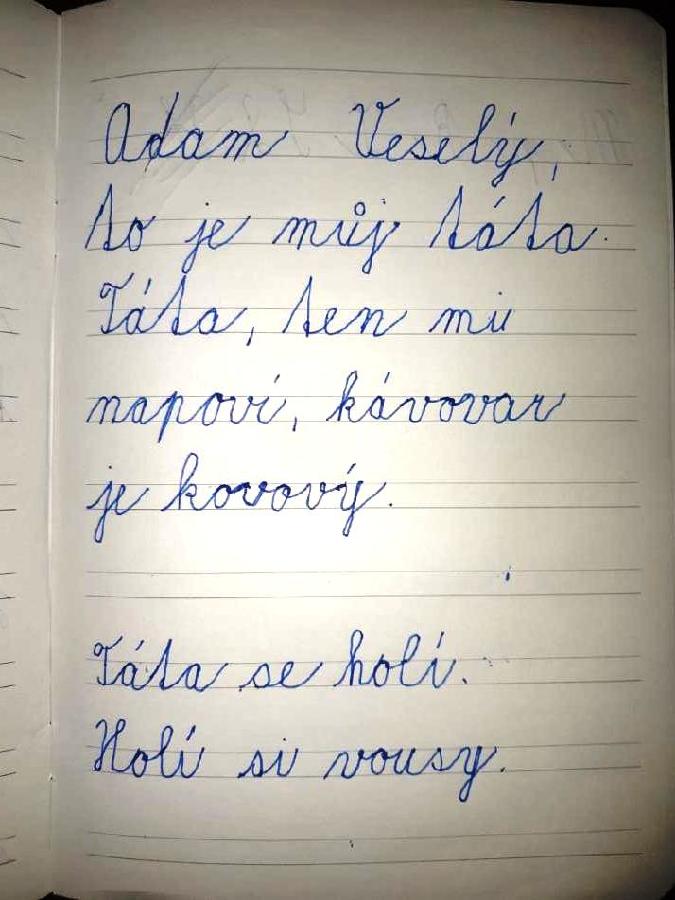 Adam Veselý,
to je můj táta.
Táta, ten mi
napoví, kávovar
je kovový.
Táta se holí.
Holí si vousy.